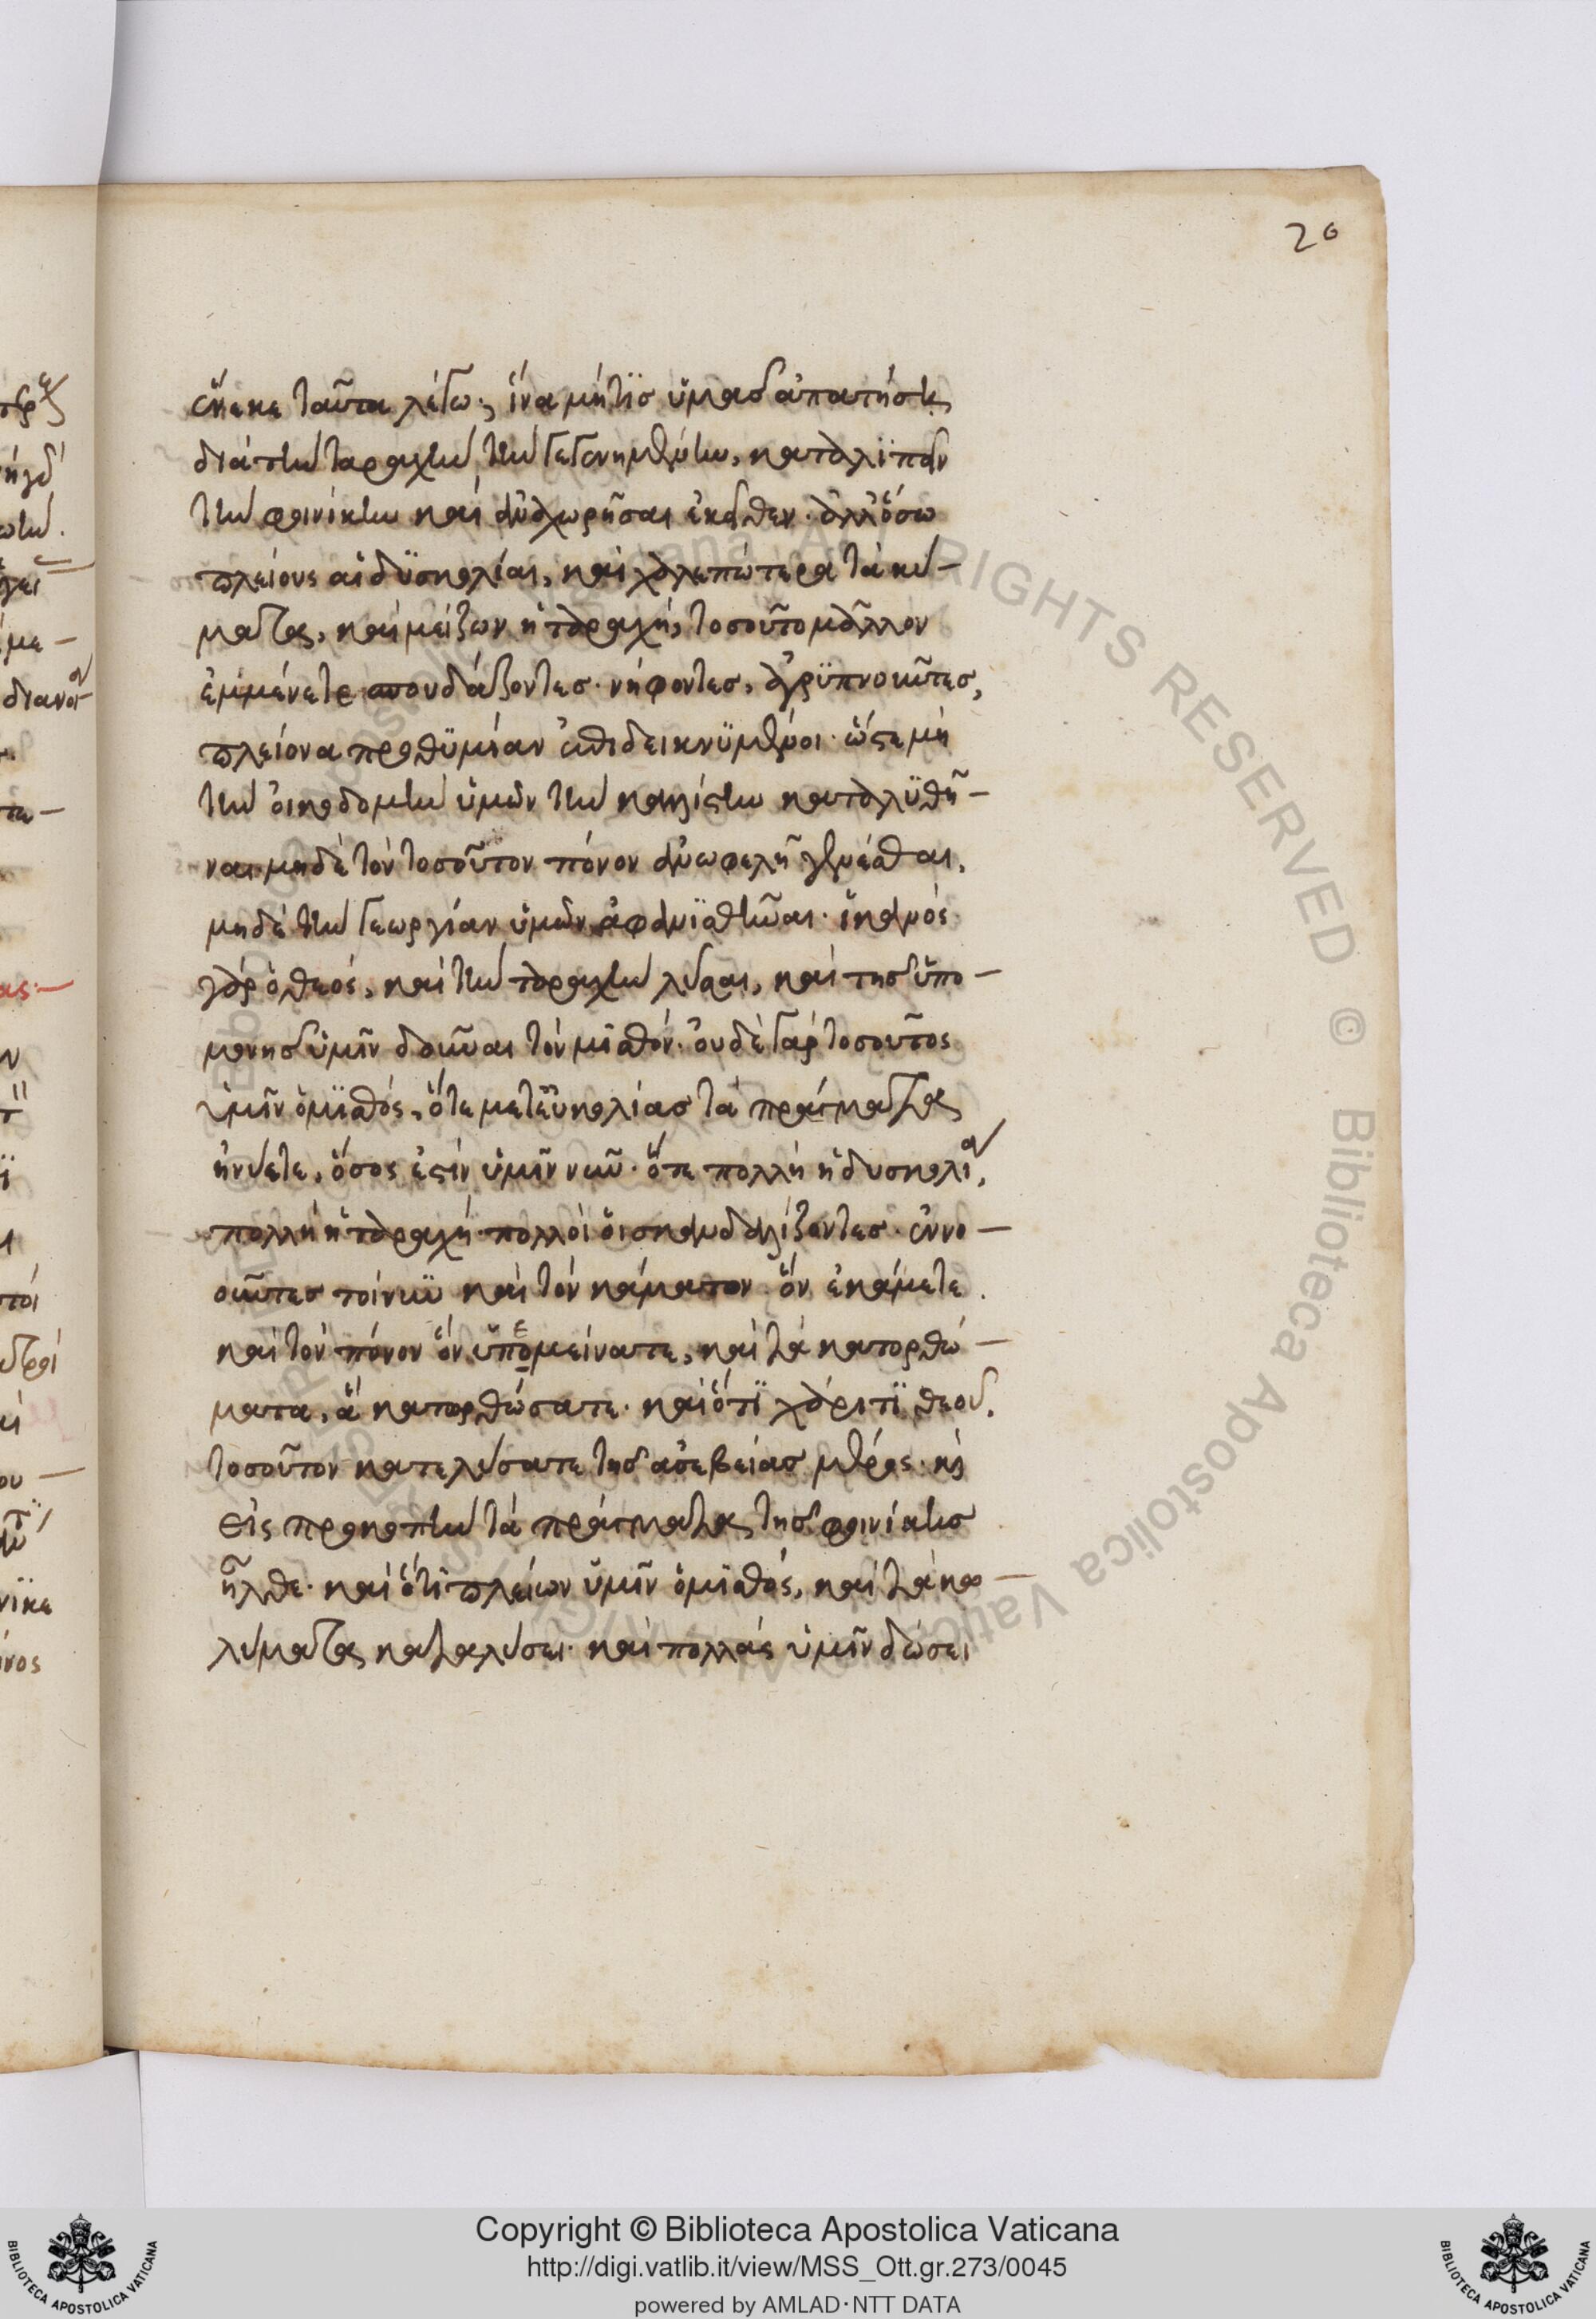 20
ἕνεκε ταῦτα λέγω· ἵνα μήτϊσ ὑμᾶσ ἀπατήση
διὰ τὴν ταραχὴν τὴν γεγενημένην, καταλιπεῖν
τὴν φοινίκην καὶ ἀναχωρῆσαι ἐκεῖθεν. ἀλλ' ὅσω
πλείους αἱ δϋσκολίαι, καὶ χαλεπώτερα τὰ κύ-
ματα, καὶ μείζων ἡ ταραχή, τοσοῦτο μᾶλλον
ἐμμένετε σπουδάζοντεσ· νήφοντεσ, ἀγρϋπνοῦντεσ,
πλείονα προθϋμίαν ἐπιδεικνϋμένοι· ὥστε μὴ
τὴν οἰκοδομὴν ὑμῶν τὴν καλλίστην καταλϋθῆ-
ναι μηδὲ τὸν τοσοῦτον πόνον ἀνωφελῆ γενέσθαι,
μηδὲ τὴν γεωργίαν ὑμῶν ἀφανϊσθῆναι· ἱκανός
γὰρ ὁ θεός, καὶ τὴν ταραχὴν λύσαι, καὶ τησ ὑπο-
μονησ ὑμῖν δοῦναι τὸν μισθόν· οὐδὲ γὰρ τοσοῦτος
ὑμῖν ὁ μϊσθός, ὅτε μετ' εὐκολίασ τὰ πράγματα
ἠνύετε, ὅσος ἐστὶν ὑμῖν νῦν· ὅτε πολλὴ ἡ δυσκολία,
πολλὴ ἡ ταραχὴ· πολλοὶ οἱ σκανδαλίζοντεσ· ἐννο-
οῦντεσ τοίνυν καὶ τὸν κάματον ὃν ἐκάμετε.
καὶ τὸν πόνον ὃν ὑπεμείνατε, καὶ τὰ κατορθώ-
ματα, ἃ κατορθώσατε· καὶ ὅτϊ χάριτϊ θεοῦ,
τοσοῦτον κατελύσατε τησ ἀσεβείασ μέρος· καὶ
εἰς προκοπὴν τὰ πράγματα τησ φοινίκησ
ἦλθε· καὶ ὅτι πλείων ὑμῖν ὁ μϊσθός, καὶ τὰ κω-
λύματα καταλύσει· καὶ πολλὰς ὑμῖν δώσει
Copyright © Biblioteca Apostolica Vaticana
http://digi.vatlib.it/view/MSS_Ott.gr.273/0045
powered by AMLAD·NTT DATA